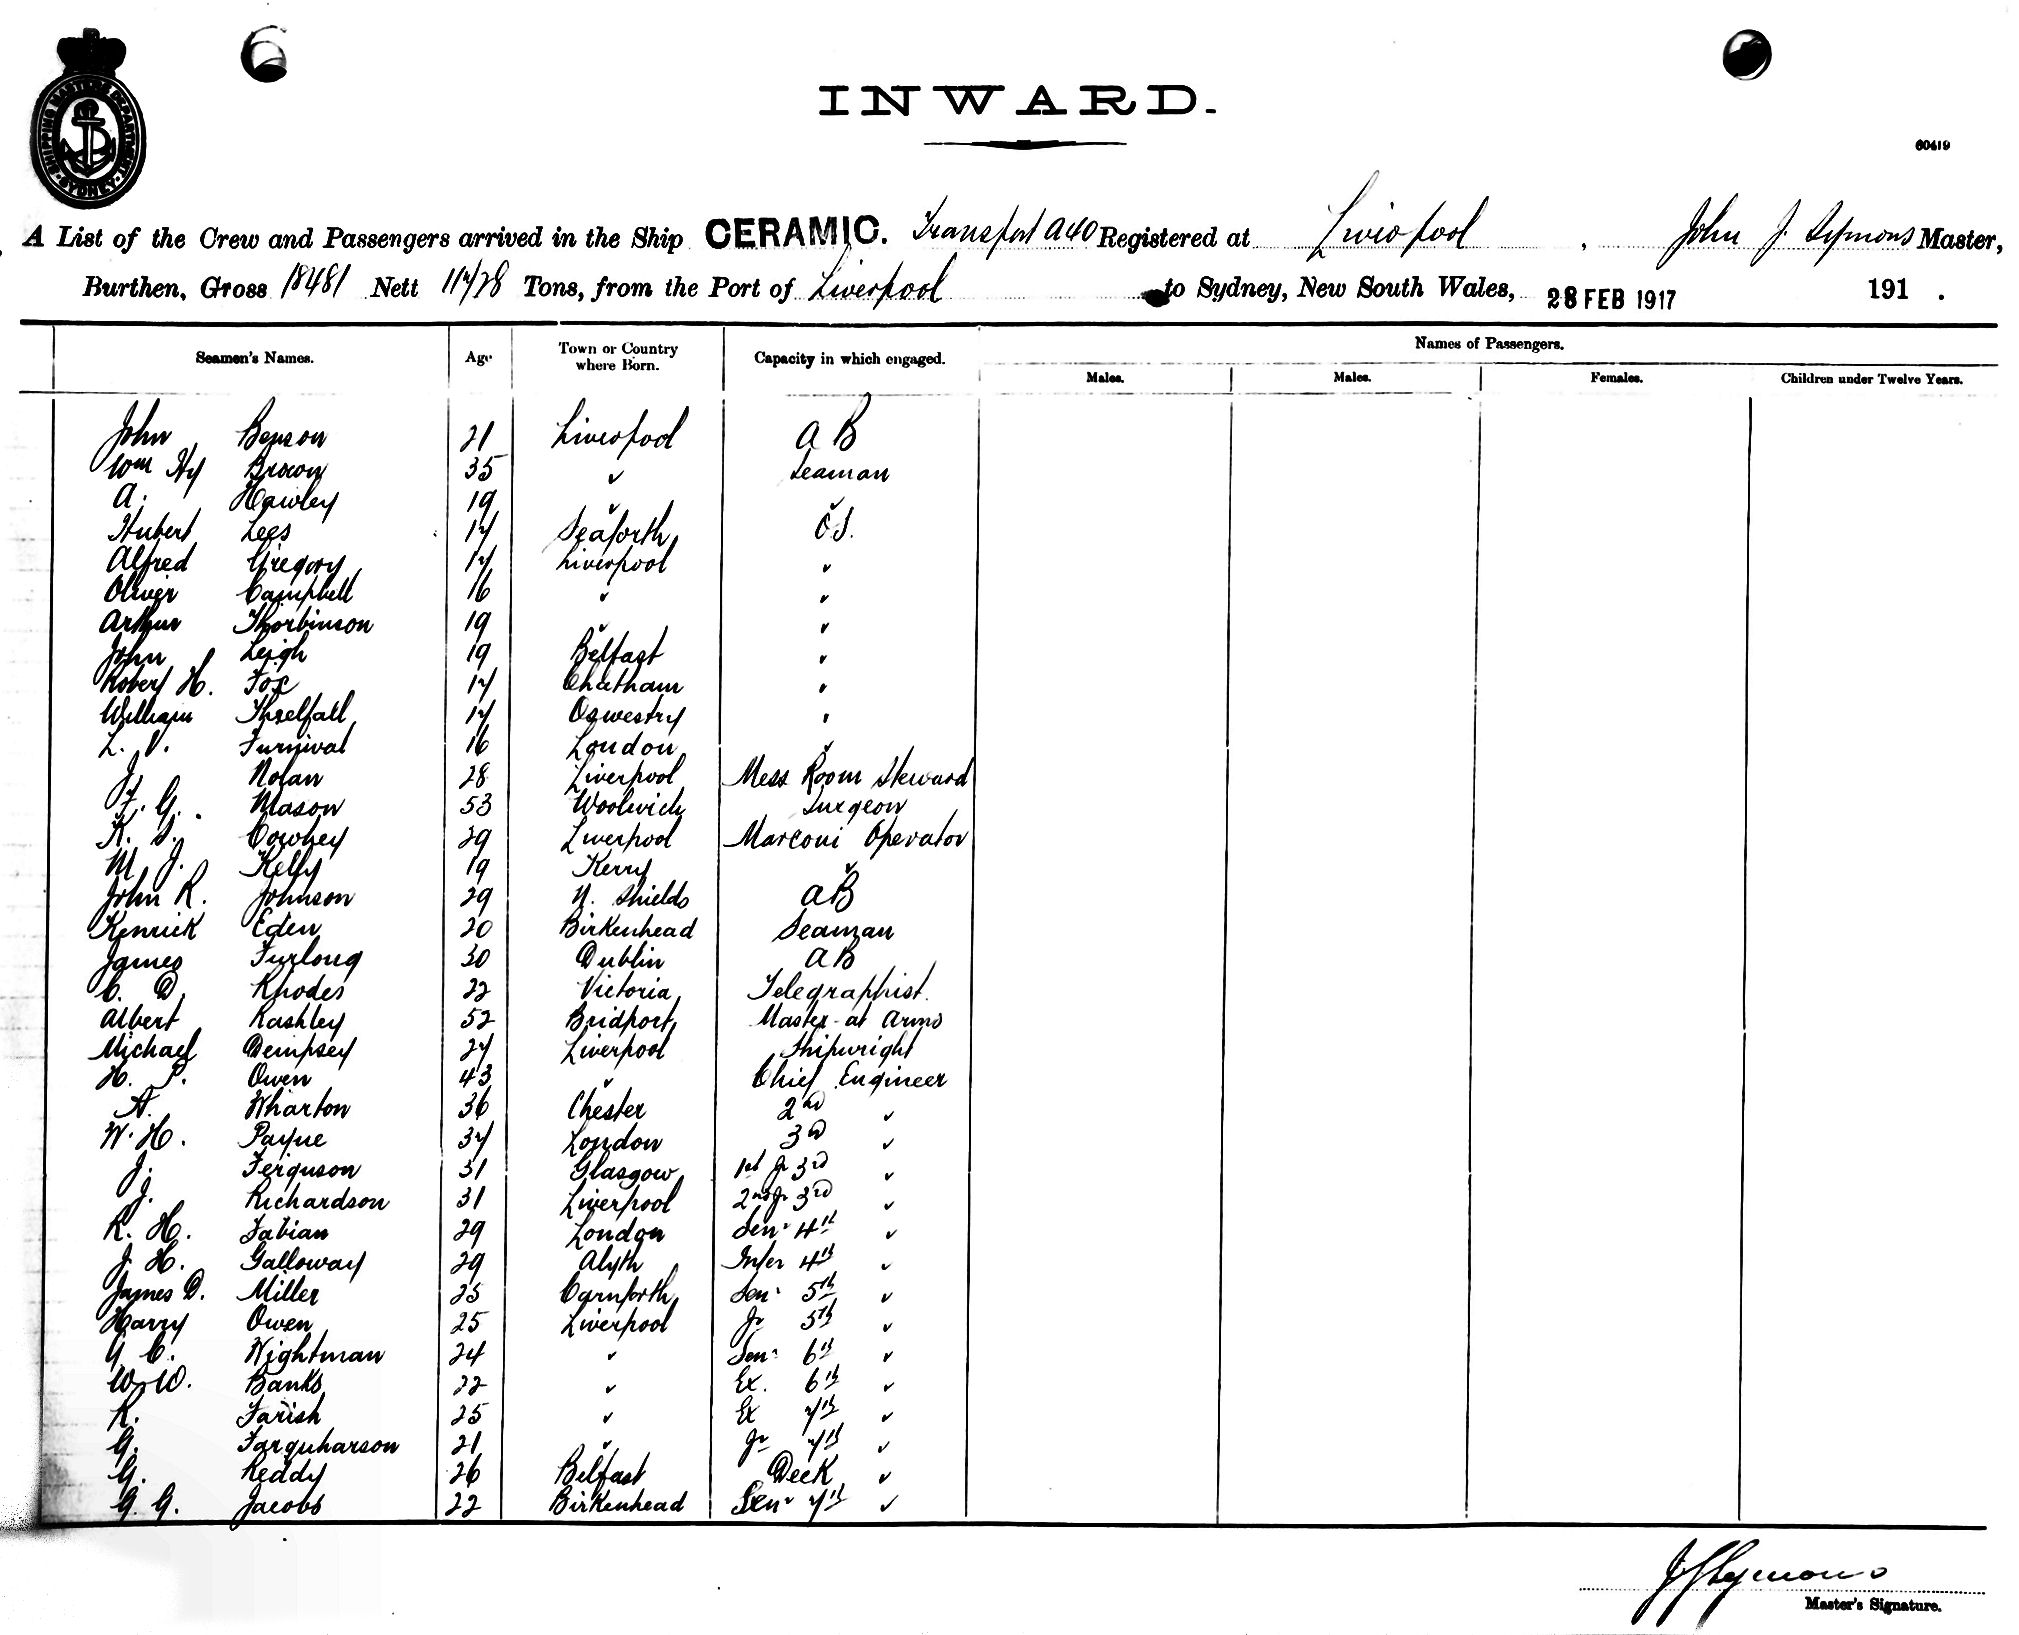 SHIPPING MASTERS DEPARTMENT
SYDNEY
INWARD.
60419
A List of the Crew and Passengers arrived in the Ship CERAMIC. Transport A40 Registered at Liverpool, John J. Symons Master,
Burthen, Gross 18481 Nett 11728 Tons, from the Port of Liverpool to Sydney, New South Wales, 28 FEB 1917 191 .
Seamen's Names. Age Town or Country where Born. Capacity in which engaged. Names of Passengers.
Males. Males. Females. Children under Twelve Years.
John Benson 21 Liverpool AB
Wm Hy Brown 35 " Seaman
A. Hawley 19 " "
Hubert Lees 17 Seaforth O.S.
Alfred Gregory 17 Liverpool "
Oliver Campbell 16 " "
Arthur Thorbinson 19 " "
John Leigh 19 Belfast "
Robert H. Fox 17 Chatham "
William Threlfall 17 Oswestry "
L. V. Furnival 16 London "
J. Nolan 28 Liverpool Mess Room Steward
F. G. Mason 53 Woolwich Surgeon
K. S. Cowhey 29 Liverpool Marconi Operator
M J. Kelly 19 Kerry "
John R. Johnson 29 N. Shields AB
Kenrick Eden 20 Birkenhead Seaman
James Furlong 30 Dublin AB
C. D Rhodes 22 Victoria Telegraphist.
Albert Rashley 52 Bridport Master-at Arms
Michael Dempsey 27 Liverpool Shipwright
H. P. Owen 43 " Chief Engineer
A. Wharton 36 Chester 2nd "
W. H. Payne 37 London 3rd "
J. Ferguson 31 Glasgow 1st Jr 3rd "
J. Richardson 31 Liverpool 2nd Jr 3rd "
R. H. Fabian 29 London Senr 4th "
J. H. Galloway 29 Alyth Inter 4th "
James D. Miller 25 Carnforth Senr 5th "
Harry Owen 25 Liverpool Jr 5th "
G C. Wightman 24 " Senr 6th "
W. W. Banks 22 " Ex. 6th "
R. Farish 25 " Ex 7th "
G. Farquharson 21 " Jr 7th "
G. Reddy 26 Belfast Deck "
G. G. Jacobs 22 Birkenhead Senr 7th "
J J Symons
Master's Signature.